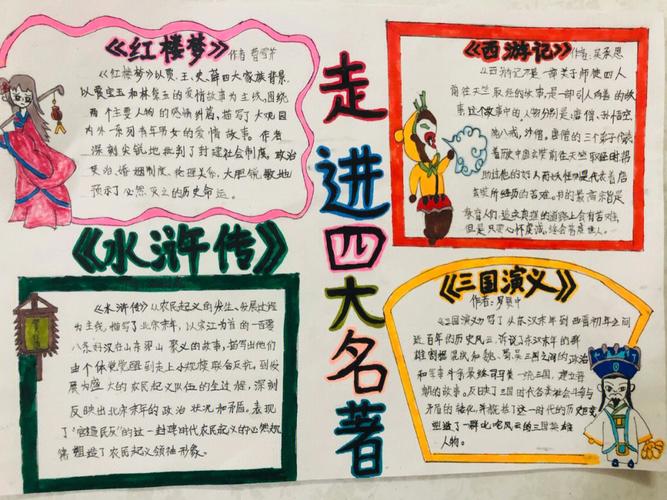 走进四大名著
《红楼梦》 作者 曹雪芹
《红楼梦》以贾、王、史、薛四大家族背景,
以贾宝玉和林黛玉的爱情故事为主线,围绕
两个主要人物的感情纠葛,描写了大观园
内外一系列青年男女的爱情故事。作者
深刻尖锐地批判了封建社会制度、政治
吏治、婚姻制度、伦理关系,大胆
预示了必然灭亡的历史命运。
《西游记》 作者:吴承恩
《西游记》是一部关于师徒四人
前往天竺取经的故事,是一部引人向善的故
事,这个故事中的人物分别是:唐僧、孙悟空、
猪八戒、沙僧,唐僧的三个弟子保
着历史中玄奘前往天竺取经时
助过他的好人,而妖怪则是代表着唐
玄奘所经历的苦难。书的最高宗旨是
告人们,追求真理的道路上会有苦难,
但是只要心怀虔诚,
《水浒传》
《水浒传》以农民起义的发生、发展过程
为主线,描写了北宋末年,以宋江为首的一百零
八条好汉在山东梁山聚义的故事,描写出他们
由个体觉醒到走上小规模联合反抗,到发
展为盛大的农民起义队伍的全过程,深刻
反映出北宋末年的政治状况和矛盾。表现
了“官逼民反”的这一封建时代农民起义的必然规
律塑造了农民起义领袖形象。
《三国演义》
作者:罗贯中
《三国演义》写了从东汉末年到西晋初年之间
近百年的历史风云,诉说了东汉末年的群
雄割据混战和魏、蜀、吴三国之间的政治
和军事斗争,最终司马炎一统三国,建立晋
朝的故事。反映了三国时代各类社会斗争与
矛盾的转化,并概括了这一时代的历史巨变,
塑造了一群叱咤风云的三国英雄
人物。